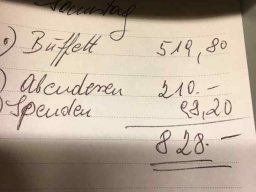 ) Büffett 519,80
) Abendessen 210.-
) Spenden 98,20
828.-